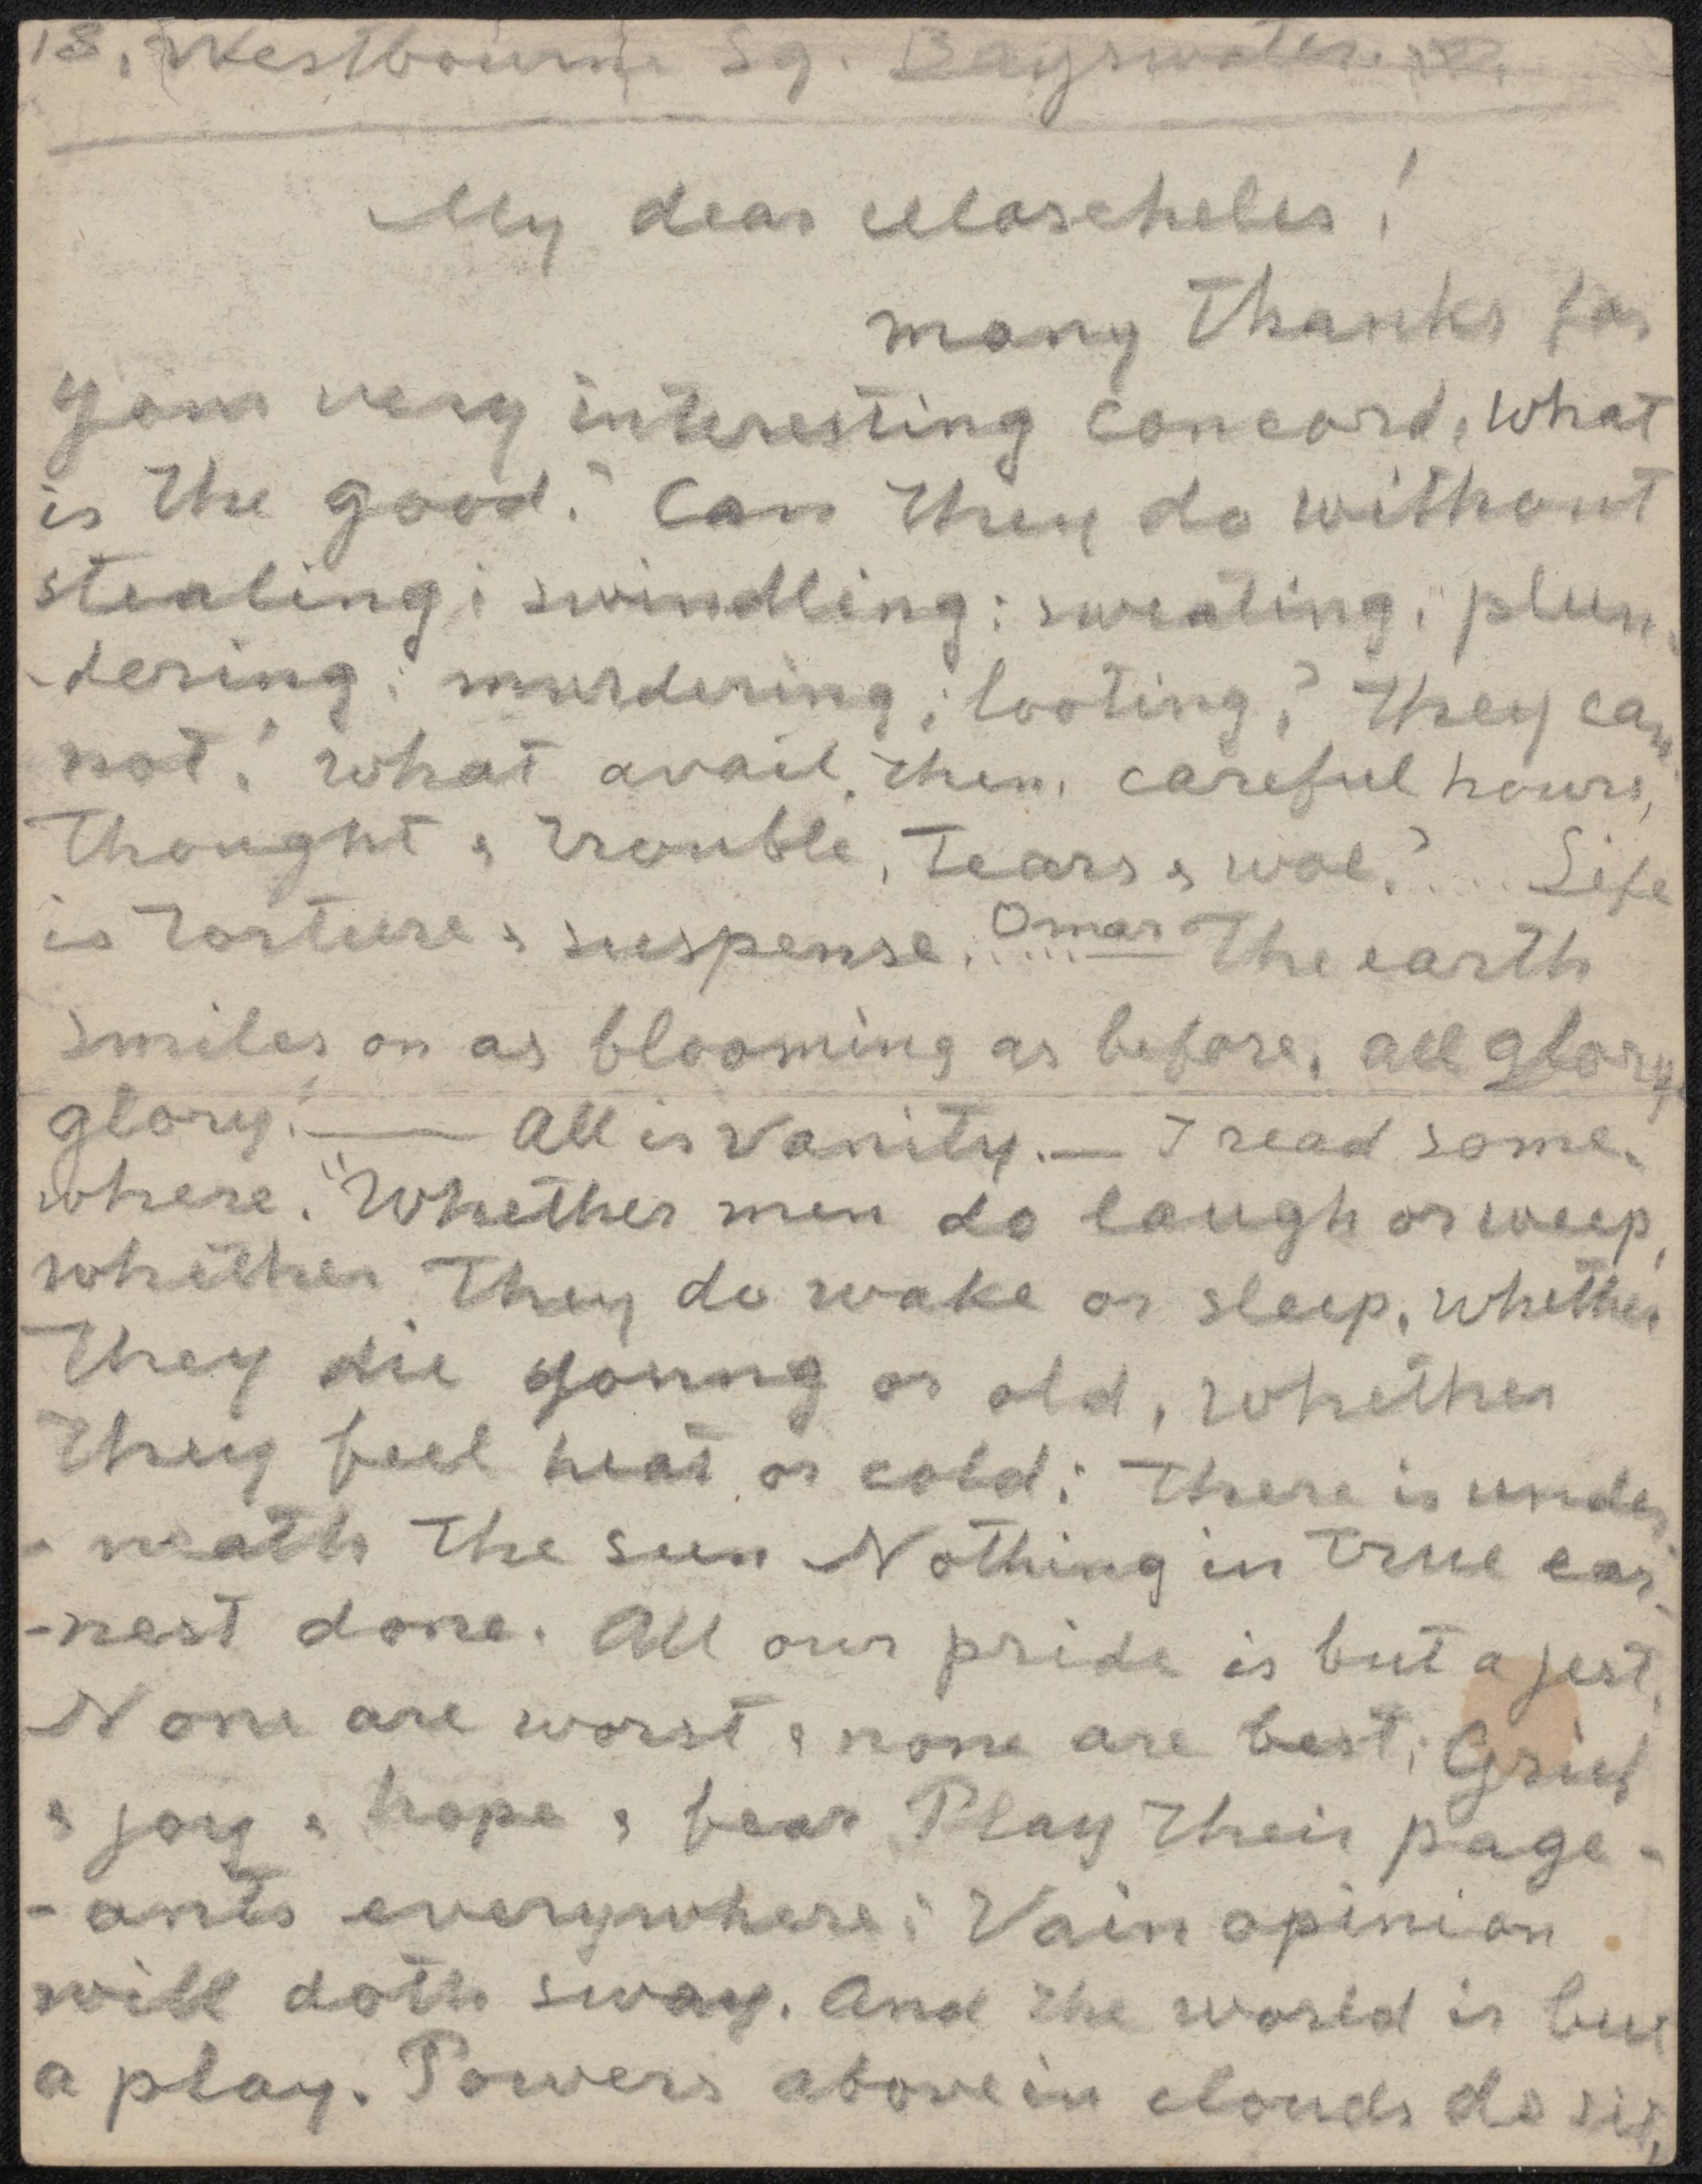 18, Westbourne Sq. Bayswater. W.
My dear Moscheles!
many thanks for
your very interesting concord, what
is the good? Can they do without
stealing; swindling; sweating; plun-
-dering; murdering; looting? They can-
not! what avail, then, careful hours,
thought & trouble, tears & woe? ... Life
is torture & suspense. ..... Omar The earth
smiles on as blooming as before, all glory,
glory! — All is Vanity. — I read some-
where. "Whether men do laugh or weep,
whether they do wake or sleep, whether
they die young or old, whether
they feel heat or cold; There is under-
-neath the sun Nothing in true ear-
-nest done. All our pride is but a jest,
None are worst & none are best; Grief
& joy & hope & fear Play their page-
-ants everywhere; Vain opinion
will doth sway. And the world is but
a play. Powers above in clouds do sit,